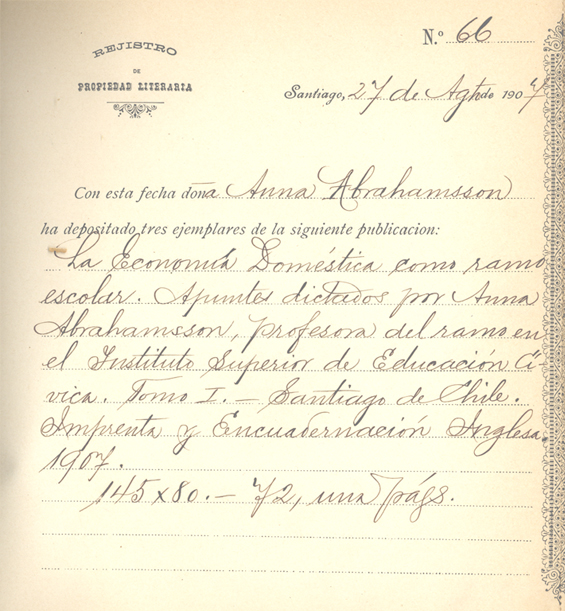 N.º 66
REJISTRO
DE
PROPIEDAD LITERARIA
Santiago, 27 de Agto de 1907
Con esta fecha doña Anna Abrahamsson
ha depositado tres ejemplares de la siguiente publicacion:
La Economía Doméstica como ramo
escolar. Apuntes dictados por Anna
Abrahamsson, profesora del ramo en
el Instituto Superior de Educación Cí-
vica. Tomo I. – Santiago de Chile.
Imprenta y Encuadernación Inglesa.
1907.
145 x 80. – 72, una págs.